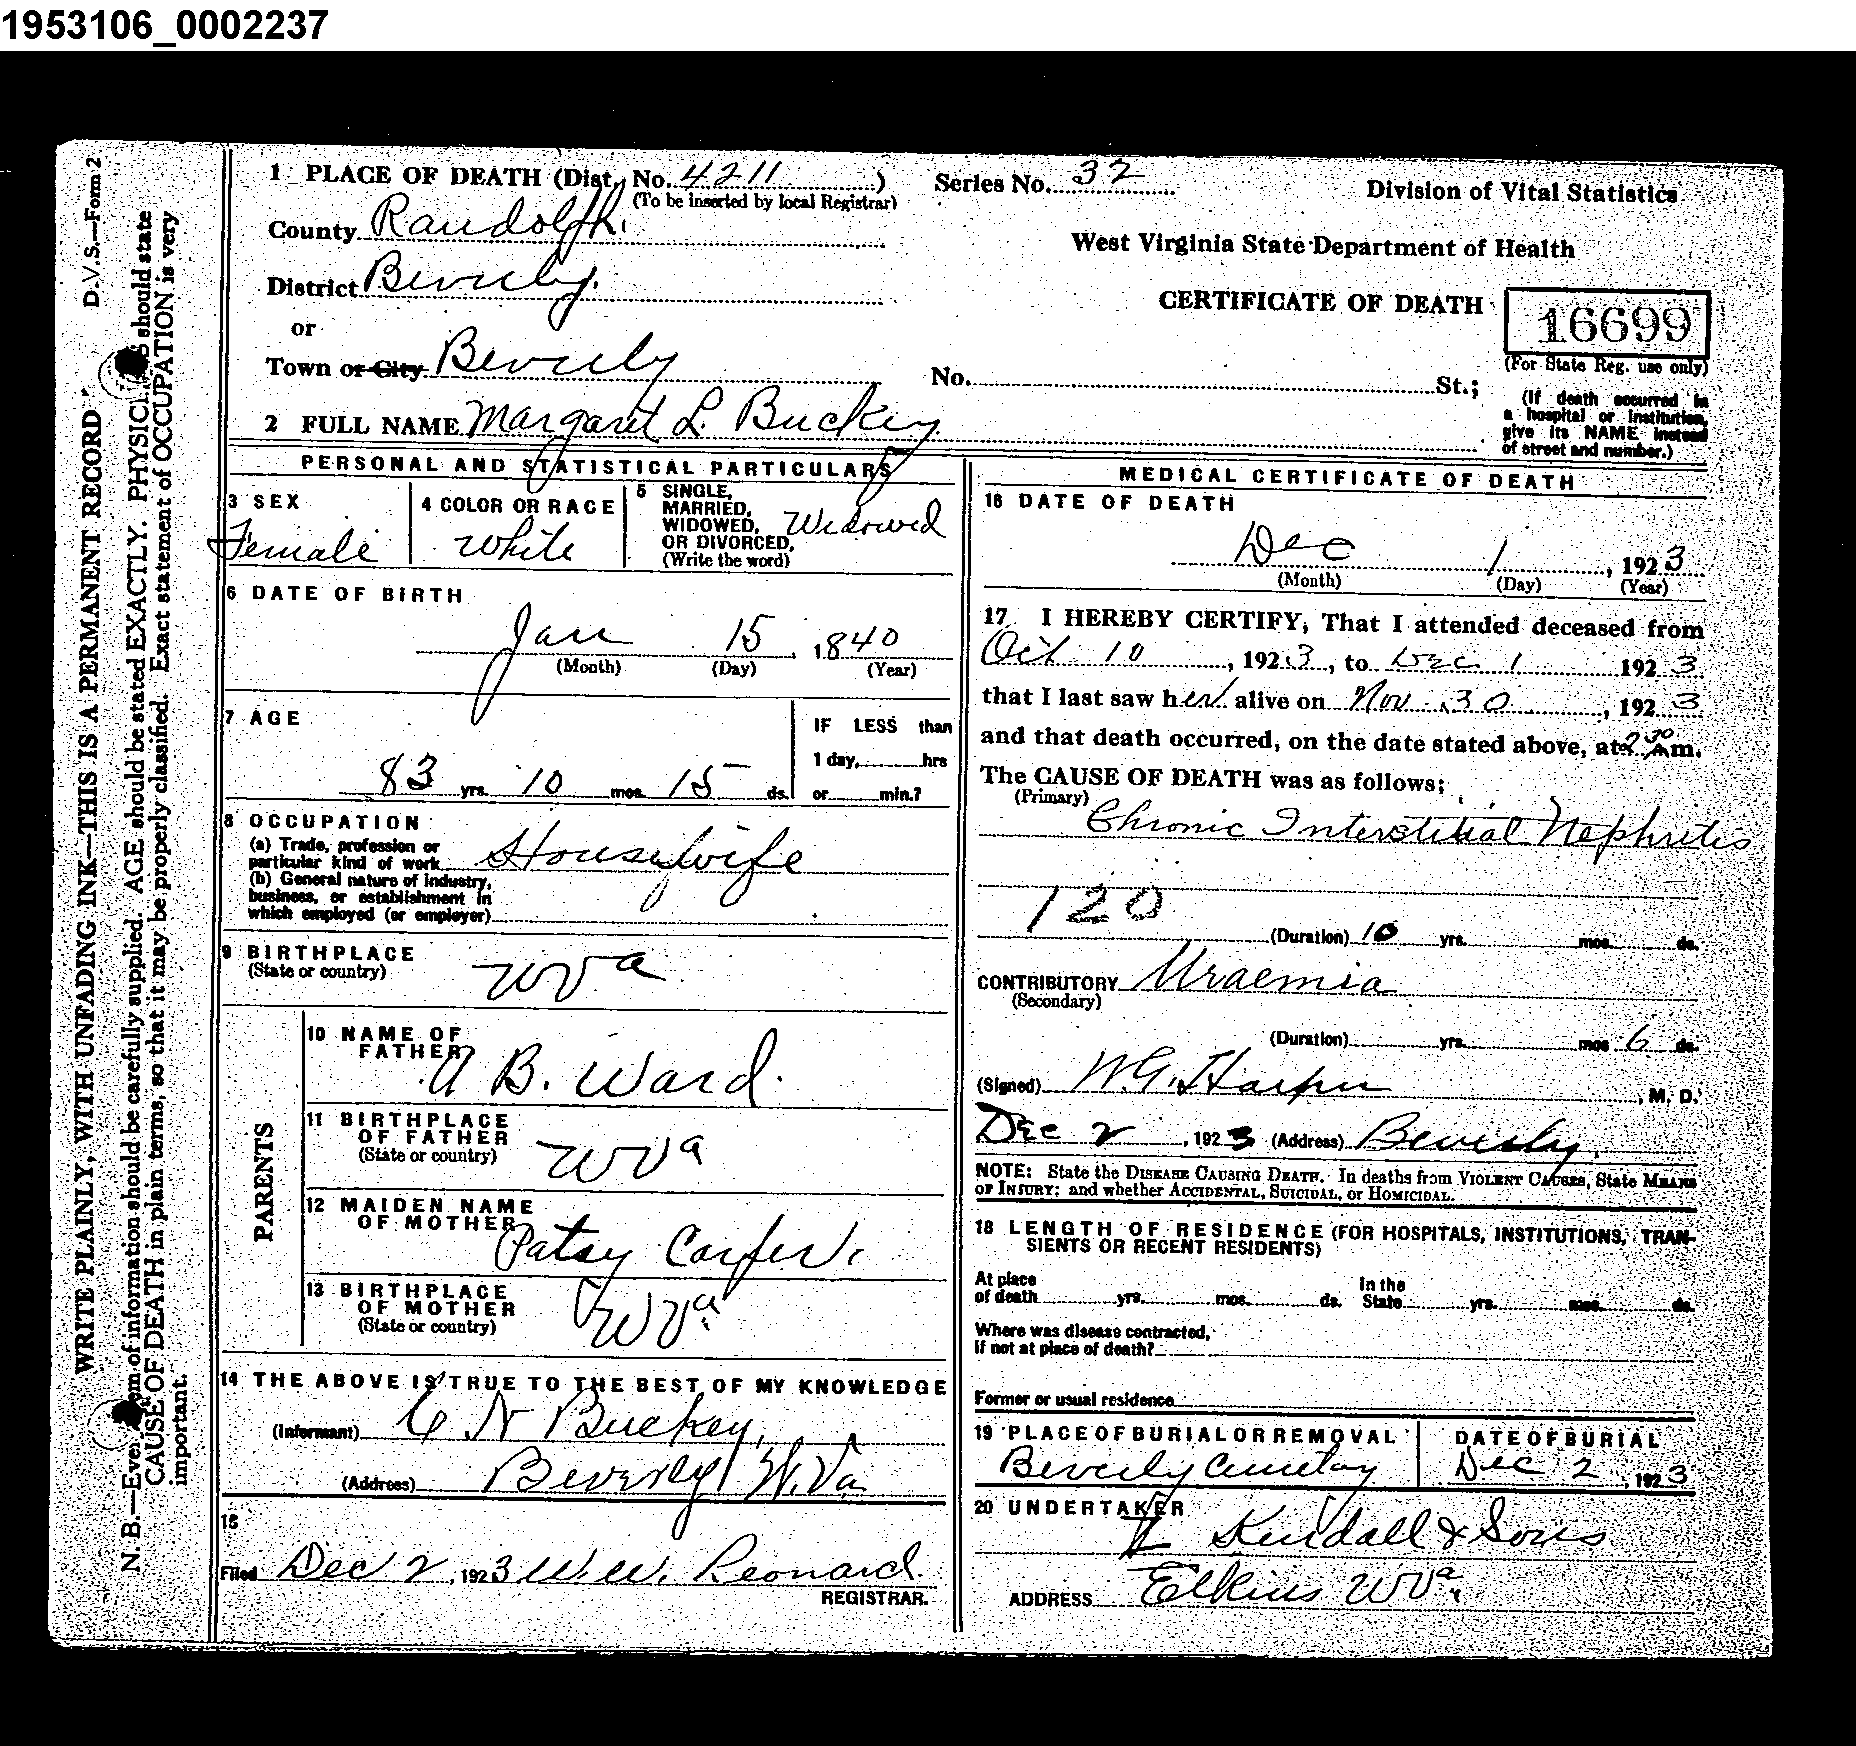 1953106_0002237
D.V.S.—Form 2
WRITE PLAINLY, WITH UNFADING INK—THIS IS A PERMANENT RECORD
N. B.—Every item of information should be carefully supplied. AGE should be stated EXACTLY. PHYSICIANS should state
CAUSE OF DEATH in plain terms, so that it may be properly classified. Exact statement of OCCUPATION is very
important.
1 PLACE OF DEATH (Dist. No. 4211 )
(To be inserted by local Registrar)
Series No. 32
Division of Vital Statistics
County Randolph.
West Virginia State Department of Health
District Beverly.
CERTIFICATE OF DEATH
16699
(For State Reg. use only)
or
Town or City Beverly
No. St.;
(If death occurred in
a hospital or institution,
give its NAME instead
of street and number.)
2 FULL NAME Margaret L. Buckey
PERSONAL AND STATISTICAL PARTICULARS
3 SEX
Female
4 COLOR OR RACE
White
5 SINGLE,
MARRIED,
WIDOWED,
OR DIVORCED,
(Write the word)
Widowed
6 DATE OF BIRTH
Jan 15, 1840
(Month) (Day) (Year)
7 AGE
83 yrs. 10 mos. 15 ds.
IF LESS than
1 day, hrs
or min.?
8 OCCUPATION
(a) Trade, profession or
particular kind of work Housewife
(b) General nature of industry,
business, or establishment in
which employed (or employer)
9 BIRTHPLACE
(State or country)
W Va
PARENTS
10 NAME OF
FATHER
A B. Ward.
11 BIRTHPLACE
OF FATHER
(State or country)
W Va
12 MAIDEN NAME
OF MOTHER
Patsy
13 BIRTHPLACE
OF MOTHER
(State or country)
W Va
14 THE ABOVE IS TRUE TO THE BEST OF MY KNOWLEDGE
(Informant) C N Buckey,
(Address) Beverly W.Va
15
Filed Dec 2, 1923 W.W. Leonard.
REGISTRAR.
MEDICAL CERTIFICATE OF DEATH
16 DATE OF DEATH
Dec 1, 1923
(Month) (Day) (Year)
17 I HEREBY CERTIFY, That I attended deceased from
Oct 10, 1923, to Dec 1 1923
that I last saw her alive on Nov. 30, 1923
and that death occurred, on the date stated above, at 2 30 Am.
The CAUSE OF DEATH was as follows;
(Primary)
Chronic Interstitial Nephritis
120
(Duration) 10 yrs. mos. ds.
CONTRIBUTORY Uraemia
(Secondary)
(Duration) yrs. mos 6 ds.
(Signed) W.G. Harper, M. D.
Dec 2, 1923 (Address) Beverly.
NOTE: State the DISEASE CAUSING DEATH. In deaths from VIOLENT CAUSES, State MEANS
OF INJURY; and whether ACCIDENTAL, SUICIDAL, or HOMICIDAL.
18 LENGTH OF RESIDENCE (FOR HOSPITALS, INSTITUTIONS, TRAN-
SIENTS OR RECENT RESIDENTS)
At place
of death yrs. mos. ds.
In the
State yrs. mos. ds.
Where was disease contracted,
if not at place of death?
Former or usual residence
19 PLACE OF BURIAL OR REMOVAL
Beverly Cemetary
DATE OF BURIAL
Dec 2, 1923
20 UNDERTAKER
Kendall & Sons
ADDRESS Elkins W Va,